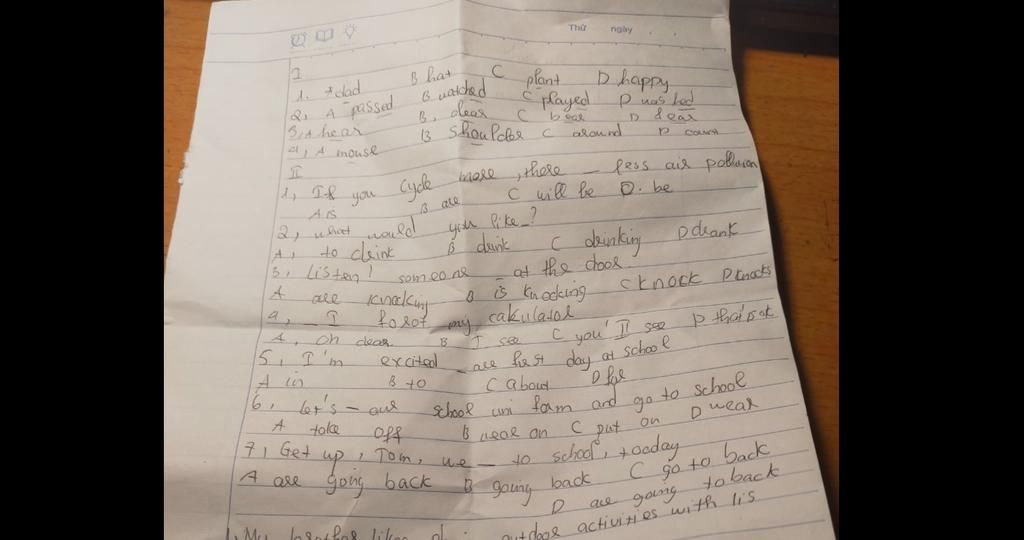 Thứ ngày
I
1. A dad B hat C plant D happy
2, A passed B watched C played D washed
3, A hear B, clear C bear D fear
4, A mouse B shoulder C around D count
II
1, If you cycle more, there _ less air pollution
A is B are C will be D. be
2, what would you like _?
A, to drink B drink C drinking D drank
3, listen! someone _ at the door
A are knocking B is knocking C knock D knocks
4, _ I forot my calculator
A, Oh dear B I see C you'll see D that's ok
5, I'm excited _ are first day at school
A in B to C about D for
6, let's - our school uni form and go to school
A take off B wear on C put on D wear
7, Get up, Tom, we - to school, tooday
A are going back B going back C go to back
D are going to back
My brother likes outdoor activities with